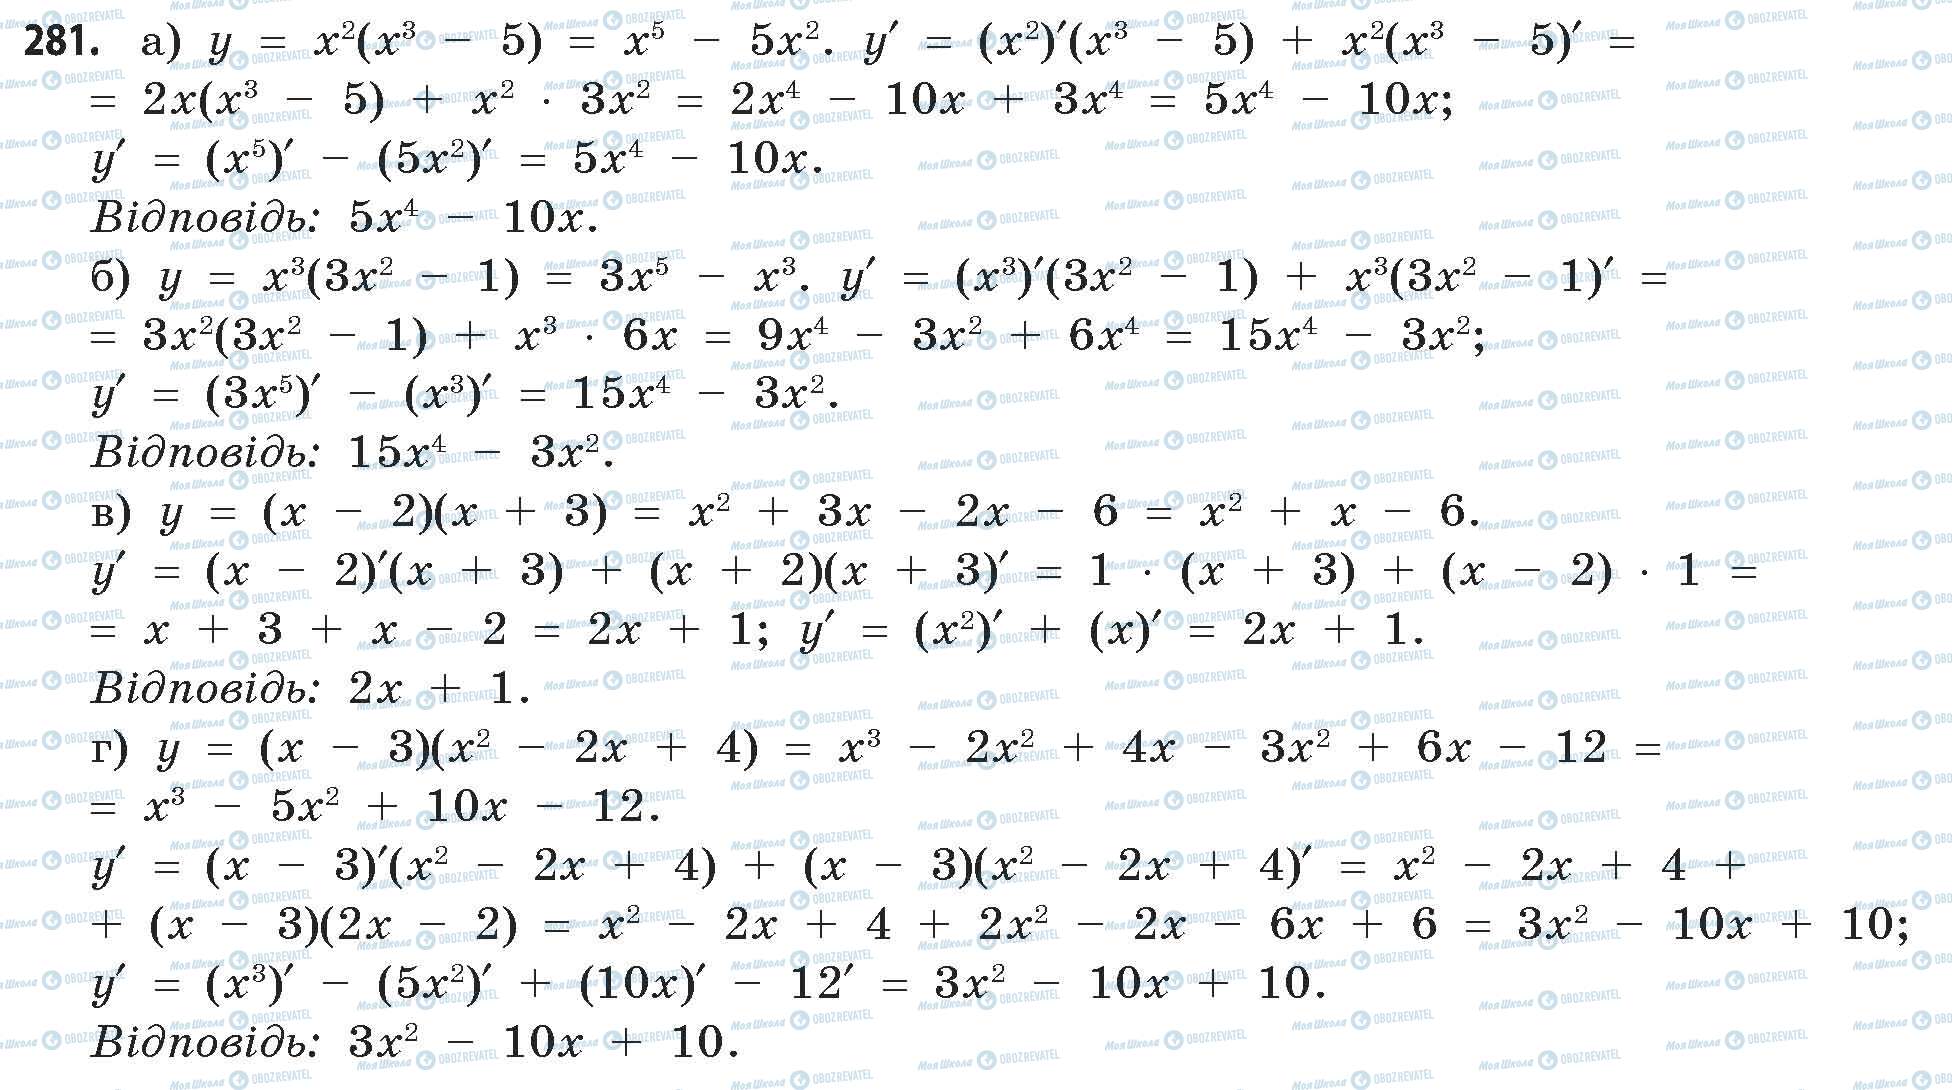 281. а) y = x²(x³ − 5) = x⁵ − 5x². y′ = (x²)′(x³ − 5) + x²(x³ − 5)′ =
= 2x(x³ − 5) + x² · 3x² = 2x⁴ − 10x + 3x⁴ = 5x⁴ − 10x;
y′ = (x⁵)′ − (5x²)′ = 5x⁴ − 10x.
Відповідь: 5x⁴ − 10x.
б) y = x³(3x² − 1) = 3x⁵ − x³. y′ = (x³)′(3x² − 1) + x³(3x² − 1)′ =
= 3x²(3x² − 1) + x³ · 6x = 9x⁴ − 3x² + 6x⁴ = 15x⁴ − 3x²;
y′ = (3x⁵)′ − (x³)′ = 15x⁴ − 3x².
Відповідь: 15x⁴ − 3x².
в) y = (x − 2)(x + 3) = x² + 3x − 2x − 6 = x² + x − 6.
y′ = (x − 2)′(x + 3) + (x + 2)(x + 3)′ = 1 · (x + 3) + (x − 2) · 1 =
= x + 3 + x − 2 = 2x + 1; y′ = (x²)′ + (x)′ = 2x + 1.
Відповідь: 2x + 1.
г) y = (x − 3)(x² − 2x + 4) = x³ − 2x² + 4x − 3x² + 6x − 12 =
= x³ − 5x² + 10x − 12.
y′ = (x − 3)′(x² − 2x + 4) + (x − 3)(x² − 2x + 4)′ = x² − 2x + 4 +
+ (x − 3)(2x − 2) = x² − 2x + 4 + 2x² − 2x − 6x + 6 = 3x² − 10x + 10;
y′ = (x³)′ − (5x²)′ + (10x)′ − 12′ = 3x² − 10x + 10.
Відповідь: 3x² − 10x + 10.